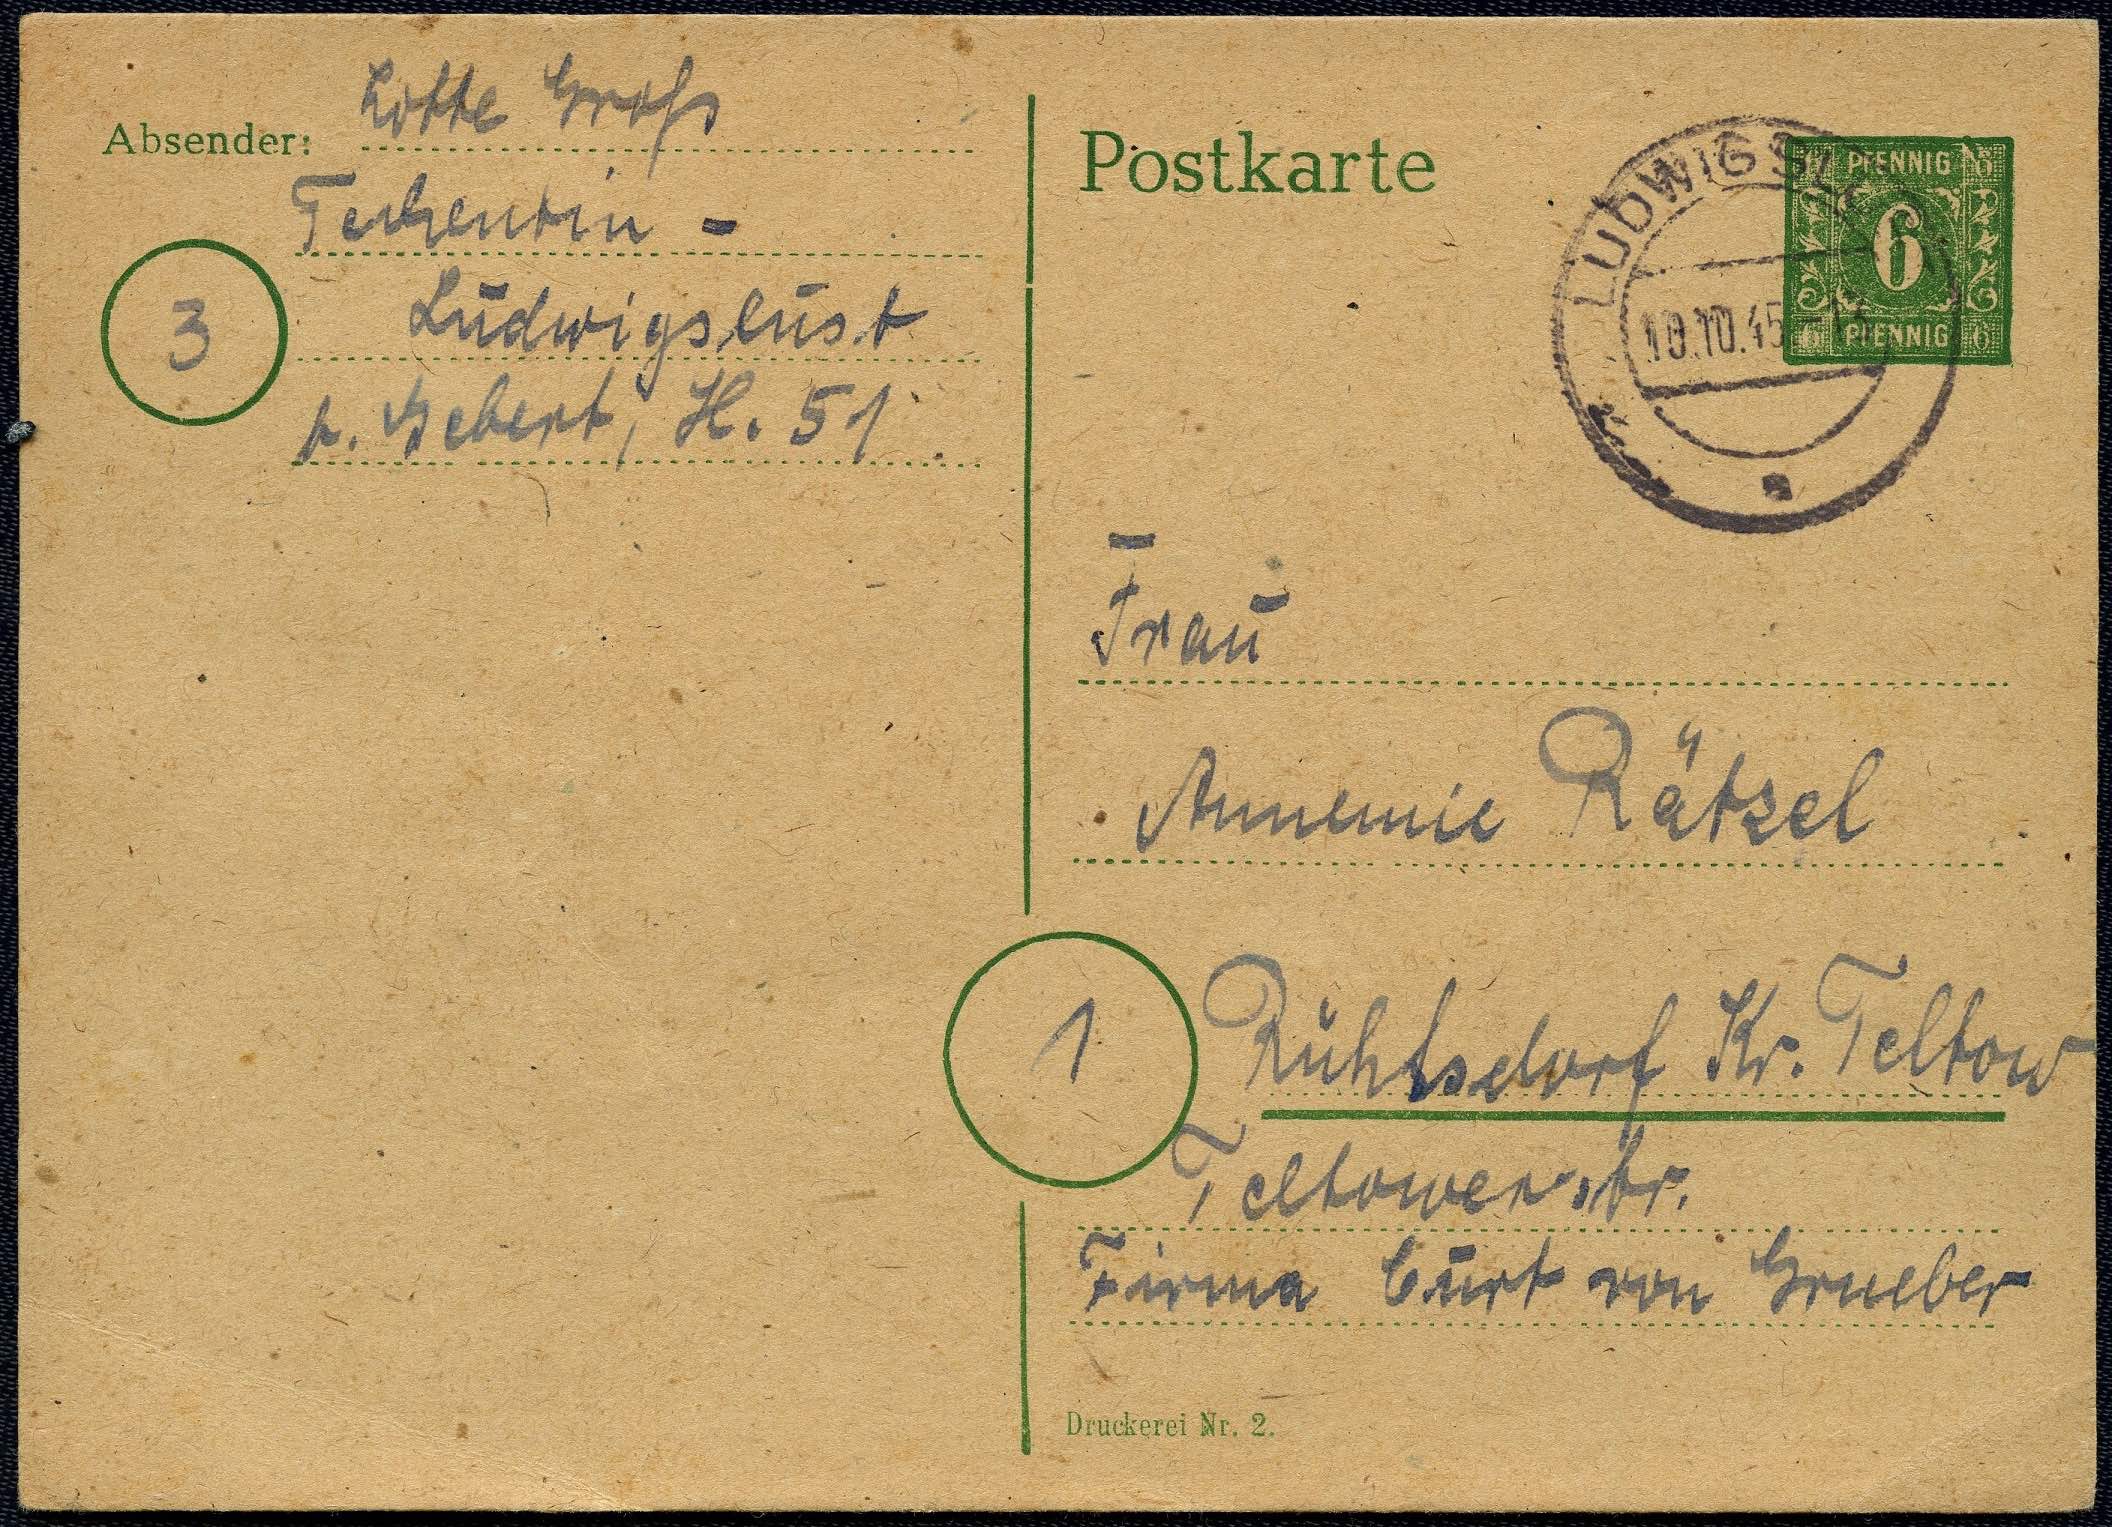 Absender: Lotte Groß
Techentin -
Ludwigslust
3
b. Gebert, H. 51
Postkarte
LUDWIGSLUST
10.10.45
6 PFENNIG 6
6
6 PFENNIG 6
a
Frau
Annemie Rätsel
1
Rühlsdorf Kr. Teltow
Teltowerstr.
Firma Curt von Grueber
Druckerei Nr. 2.